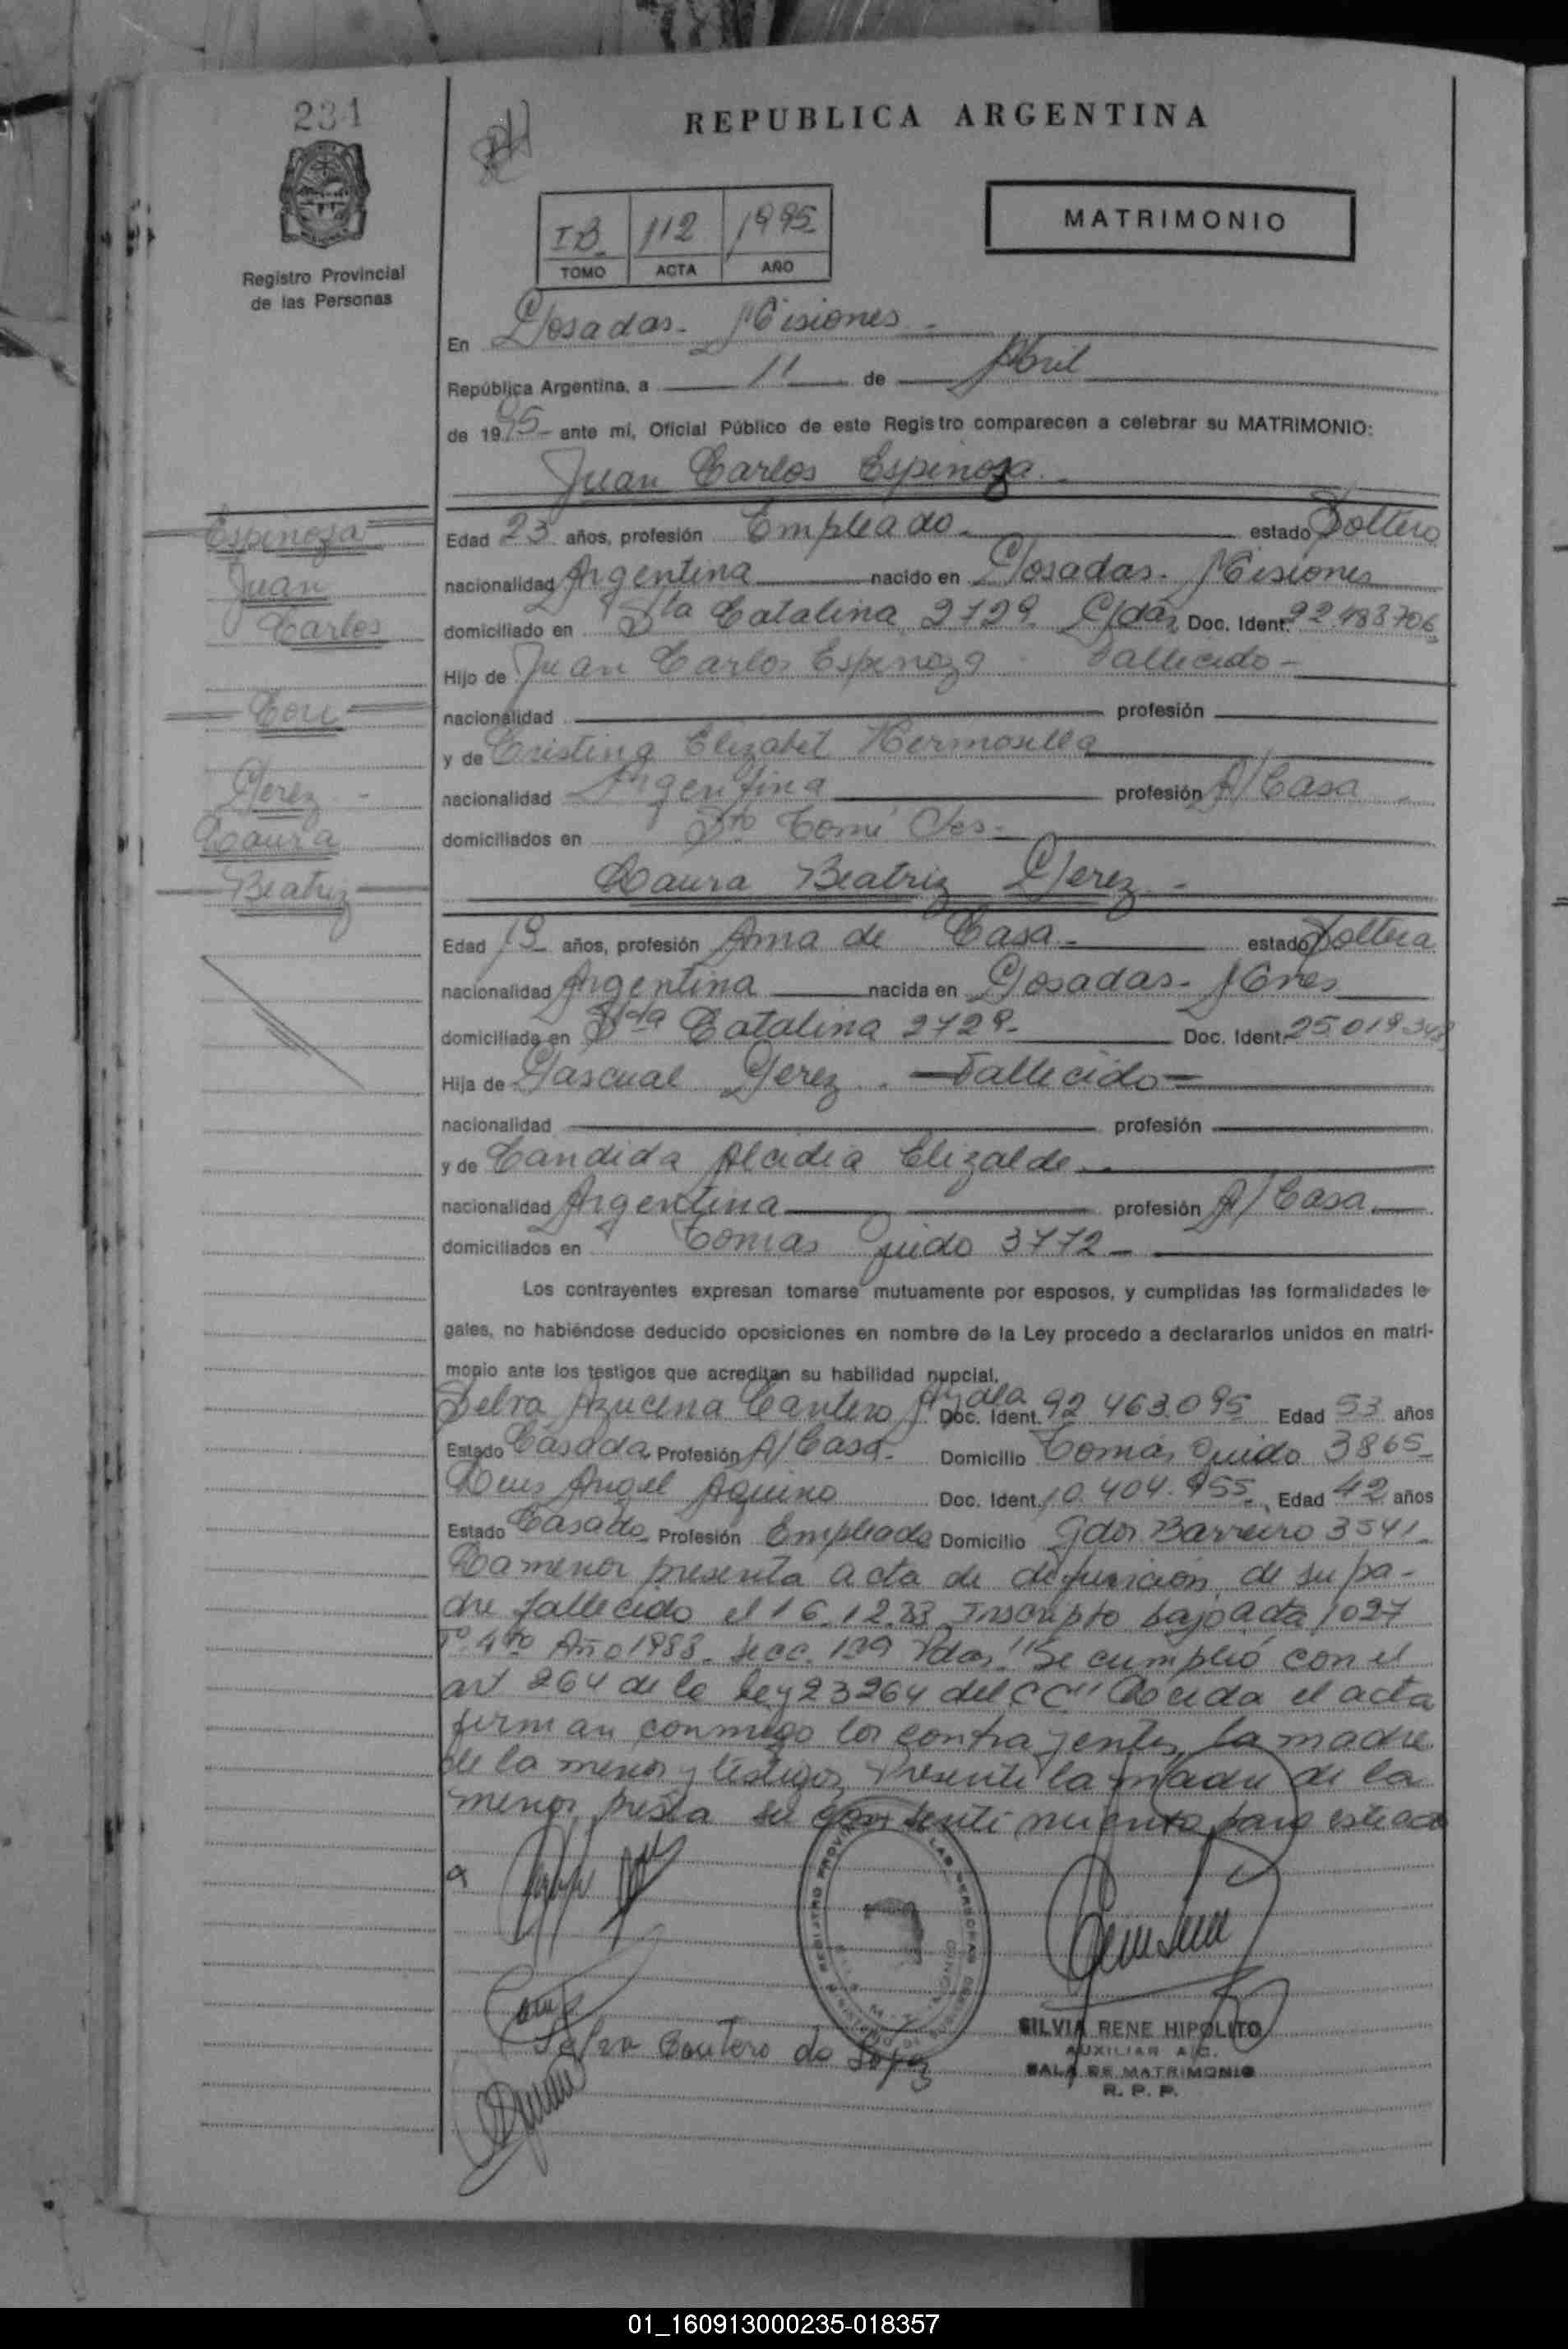 234
REPUBLICA ARGENTINA
MATRIMONIO
IB 112 1995
TOMO ACTA AÑO
Registro Provincial
de las Personas
En Posadas - Misiones -
República Argentina, a 11 de Abril
de 1995 - ante mí, Oficial Público de este Registro comparecen a celebrar su MATRIMONIO:
Juan Carlos Espinoza.
Espinoza
Juan
Carlos
Con
Perez -
Laura
Beatriz
Edad 23 años, profesión Empleado - estado Soltero
nacionalidad Argentina nacido en Posadas - Misiones
domiciliado en Sta Catalina 2729 Pdas Doc. Ident. 22.483706
Hijo de Juan Carlos Espinoza - Fallecido -
nacionalidad profesión
y de Cristina Elizabet Hermosilla
nacionalidad Argentina profesión A/ Casa
domiciliados en Sto Tomé Ctes -
Laura Beatriz Perez -
Edad 19 años, profesión Ama de Casa - estado Soltera
nacionalidad Argentina nacida en Posadas - Mnes
domiciliada en Sta Catalina 2729 - Doc. Ident. 25019348
Hija de Pascual Perez. - Fallecido -
nacionalidad profesión
y de Candida Alcidia Elizalde
nacionalidad Argentina profesión A/ Casa
domiciliados en Tomas Guido 3772 -
Los contrayentes expresan tomarse mutuamente por esposos, y cumplidas las formalidades le-
gales, no habiéndose deducido oposiciones en nombre de la Ley procedo a declararlos unidos en matri-
monio ante los testigos que acreditan su habilidad nupcial.
Selva Azucena Cantero Ayala Doc. Ident. 92.463.095 Edad 53 años
Estado Casada Profesión A/ Casa - Domicilio Tomás Guido 3865 -
Luis Angel Aquino Doc. Ident. 10.404.955 Edad 42 años
Estado Casado Profesión Empleado Domicilio Gdor Barreiro 3541 -
La menor presenta acta de defunción de su pa-
dre fallecido el 16.12.83 Inscripto bajo acta 1027
Tº 4to Año 1983 - Secc. 1ra Pdas. "Se cumplió con el
art 264 de la ley 23264 del CC" Leída el acta
firman conmigo los contrayentes, la madre
de la menor y testigos Presente la madre de la
menor presta su consentimiento para este act
o
Selva Cantero de Lopez
SILVIA RENE HIPOLITO
AUXILIAR A/C.
SALA DE MATRIMONIO
R. P. P.
01_160913000235-018357